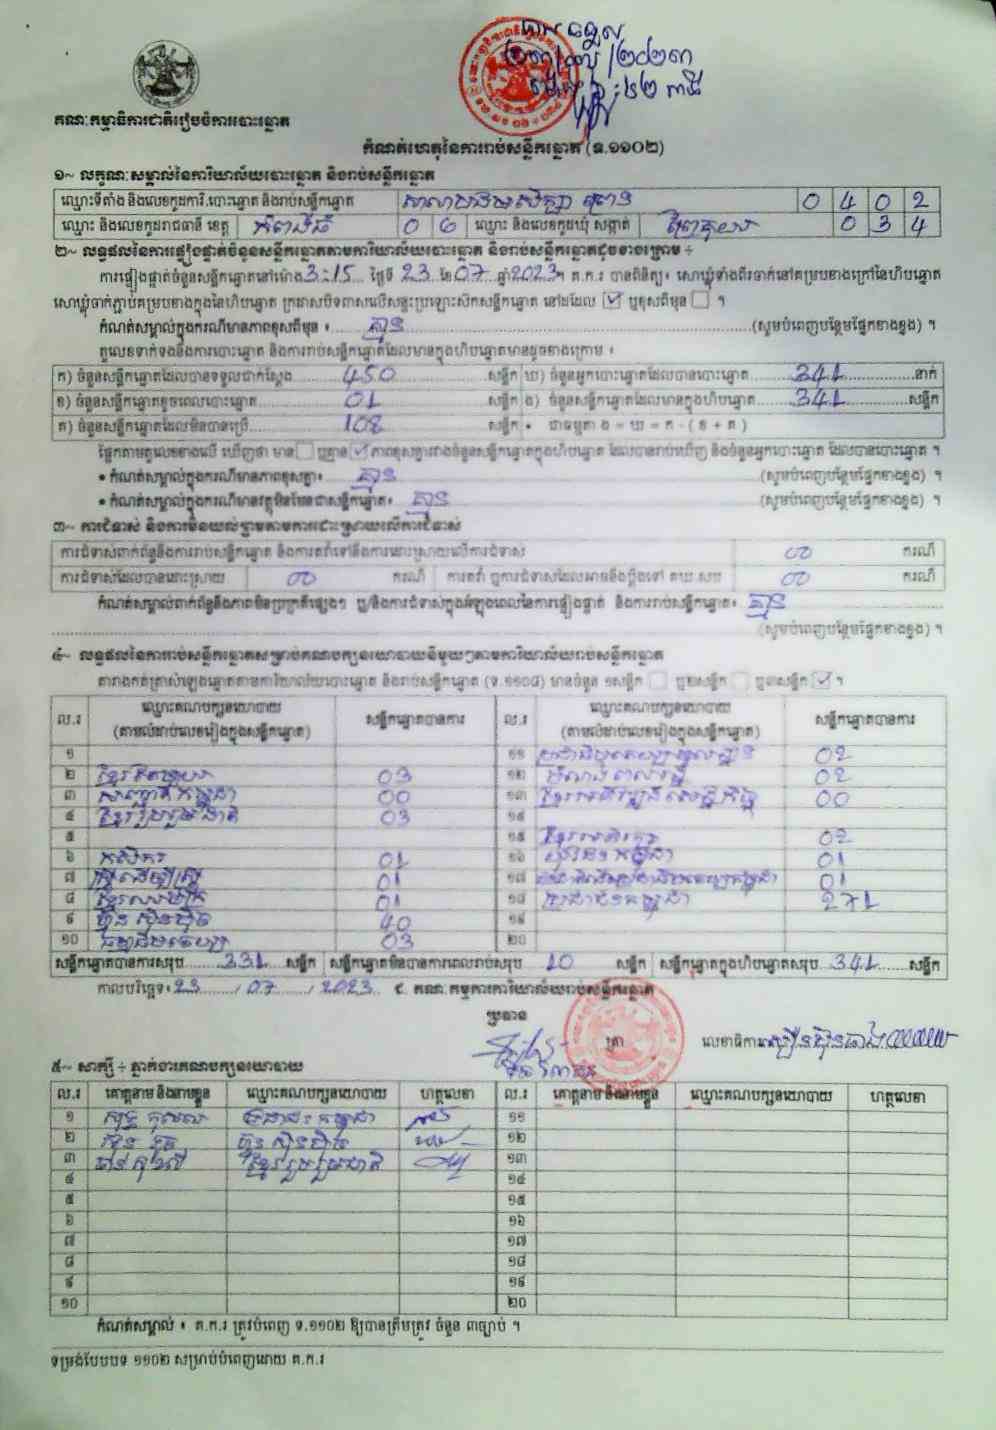 បានទទួល
២៣/៧/២០២៣
គណៈកម្មាធិការជាតិរៀបចំការបោះឆ្នោត
កំណត់ហេតុនៃការរាប់សន្លឹកឆ្នោត (ទ.១១០២)
១~ លក្ខណៈសម្គាល់នៃការិយាល័យបោះឆ្នោត និងរាប់សន្លឹកឆ្នោត
ឈ្មោះទីតាំង និងលេខកូដការិ.បោះឆ្នោត និងរាប់សន្លឹកឆ្នោត 0 4 0 2
ឈ្មោះ និងលេខកូដរាជធានី ខេត្ត កំពង់ធំ 0 6 ឈ្មោះ និងលេខកូដឃុំ សង្កាត់ 0 3 4
២~ លទ្ធផលនៃការផ្ទៀងផ្ទាត់ចំនួនសន្លឹកឆ្នោតតាមការិយាល័យបោះឆ្នោត និងរាប់សន្លឹកឆ្នោតដូចខាងក្រោម ÷
ការផ្ទៀងផ្ទាត់ចំនួនសន្លឹកឆ្នោតនៅម៉ោង 3:15 ថ្ងៃទី 23 ខែ 07 ឆ្នាំ 2023។ គ.ក.រ បានពិនិត្យ៖ សោឃ្លុំទាំងពីរចាក់នៅគម្របខាងក្រៅនៃហិបឆ្នោត
សោឃ្លុំចាក់ភ្ជាប់គម្របខាងក្នុងនៃហិបឆ្នោត ក្រដាសបិទពាសលើសន្ទះប្រឡោះសឹកសន្លឹកឆ្នោត នៅដដែល ☑ ឬខុសពីមុន ☐ ។
កំណត់សម្គាល់ក្នុងករណីមានភាពខុសពីមុន ៖ គ្មាន (សូមបំពេញបន្ថែមផ្នែកខាងខ្នង) ។
តួលេខទាក់ទងនឹងការបោះឆ្នោត និងការរាប់សន្លឹកឆ្នោតដែលមានក្នុងហិបឆ្នោតមានដូចខាងក្រោម ៖
ក) ចំនួនសន្លឹកឆ្នោតដែលបានទទួលជាក់ស្តែង 450 សន្លឹក ឃ) ចំនួនអ្នកបោះឆ្នោតដែលបានបោះឆ្នោត 341 នាក់
ខ) ចំនួនសន្លឹកឆ្នោតខូចពេលបោះឆ្នោត 01 សន្លឹក ង) ចំនួនសន្លឹកឆ្នោតដែលមានក្នុងហិបឆ្នោត 341 សន្លឹក
គ) ចំនួនសន្លឹកឆ្នោតដែលមិនបានប្រើ 108 សន្លឹក • ជាធម្មតា ង = ឃ = ក - ( ខ + គ )
ផ្អែកតាមតួលេខខាងលើ ឃើញថា មាន ☐ ឬគ្មាន ☑ ភាពខុសគ្នារវាងចំនួនសន្លឹកឆ្នោតក្នុងហិបឆ្នោត ដែលបានរាប់ឃើញ និងចំនួនអ្នកបោះឆ្នោត ដែលបានបោះឆ្នោត ។
• កំណត់សម្គាល់ក្នុងករណីមានភាពខុសគ្នា៖ គ្មាន (សូមបំពេញបន្ថែមផ្នែកខាងខ្នង) ។
• កំណត់សម្គាល់ក្នុងករណីមានវត្ថុមិនមែនជាសន្លឹកឆ្នោត៖ គ្មាន (សូមបំពេញបន្ថែមផ្នែកខាងខ្នង) ។
៣~ ការជំទាស់ និងការមិនយល់ព្រមតាមការដោះស្រាយលើការជំទាស់
ការជំទាស់ពាក់ព័ន្ធនឹងការរាប់សន្លឹកឆ្នោត និងការតវ៉ាទៅនឹងការដោះស្រាយលើការជំទាស់ 00 ករណី
ការជំទាស់ដែលបានដោះស្រាយ 00 ករណី ការតវ៉ា ឬការជំទាស់ដែលអាចនឹងប្តឹងទៅ គឃ.សប 00 ករណី
កំណត់សម្គាល់ពាក់ព័ន្ធនឹងភាពមិនប្រក្រតីផ្សេងៗ ឬ/និងការជំទាស់ក្នុងអំឡុងពេលនៃការផ្ទៀងផ្ទាត់ និងការរាប់សន្លឹកឆ្នោត៖ គ្មាន
(សូមបំពេញបន្ថែមផ្នែកខាងខ្នង) ។
៤~ លទ្ធផលនៃការរាប់សន្លឹកឆ្នោតសម្រាប់គណបក្សនយោបាយនីមួយៗតាមការិយាល័យរាប់សន្លឹកឆ្នោត
តារាងកត់ត្រាសំឡេងឆ្នោតតាមការិយាល័យបោះឆ្នោត និងរាប់សន្លឹកឆ្នោត (ទ.១១០៨) មានចំនួន ១សន្លឹក ☐ ឬ២សន្លឹក ☐ ឬ៣សន្លឹក ☑ ។
ល.រ ឈ្មោះគណបក្សនយោបាយ (តាមលំដាប់លេខរៀងក្នុងសន្លឹកឆ្នោត) សន្លឹកឆ្នោតបានការ ល.រ ឈ្មោះគណបក្សនយោបាយ (តាមលំដាប់លេខរៀងក្នុងសន្លឹកឆ្នោត) សន្លឹកឆ្នោតបានការ
១ ១១ 02
២ 03 ១២ 02
៣ 00 ១៣ 00
៤ ខ្មែររួបរួមជាតិ 03 ១៤
៥ ១៥ 02
៦ កសិករ 01 ១៦ 01
៧ ស្ត្រីដើម្បីស្ត្រី 01 ១៧ 01
៨ 01 ១៨ ប្រជាជនកម្ពុជា 271
៩ ហ៊្វុនស៊ិនប៉ិច 40 ១៩
១០ 03 ២០
សន្លឹកឆ្នោតបានការសរុប 331 សន្លឹក សន្លឹកឆ្នោតមិនបានការពេលរាប់សរុប 10 សន្លឹក សន្លឹកឆ្នោតក្នុងហិបឆ្នោតសរុប 341 សន្លឹក
កាលបរិច្ឆេទ៖ 23 / 07 / 2023 ៩ គណៈកម្មការការិយាល័យរាប់សន្លឹកឆ្នោត
ប្រធាន
ត្រា លេខាធិការ
៥~ សាក្សី ÷ ភ្នាក់ងារគណបក្សនយោបាយ
ល.រ គោត្តនាម និងនាមខ្លួន ឈ្មោះគណបក្សនយោបាយ ហត្ថលេខា ល.រ គោត្តនាម និងនាមខ្លួន ឈ្មោះគណបក្សនយោបាយ ហត្ថលេខា
១ ប្រជាជនកម្ពុជា ១១
២ ហ៊្វុនស៊ិនប៉ិច ១២
៣ ខ្មែររួបរួមជាតិ ១៣
៤ ១៤
៥ ១៥
៦ ១៦
៧ ១៧
៨ ១៨
៩ ១៩
១០ ២០
កំណត់សម្គាល់ ៖ គ.ក.រ ត្រូវបំពេញ ទ.១១០២ ឱ្យបានត្រឹមត្រូវ ចំនួន ៣ច្បាប់ ។
ទម្រង់បែបបទ ១១០២ សម្រាប់បំពេញដោយ គ.ក.រ